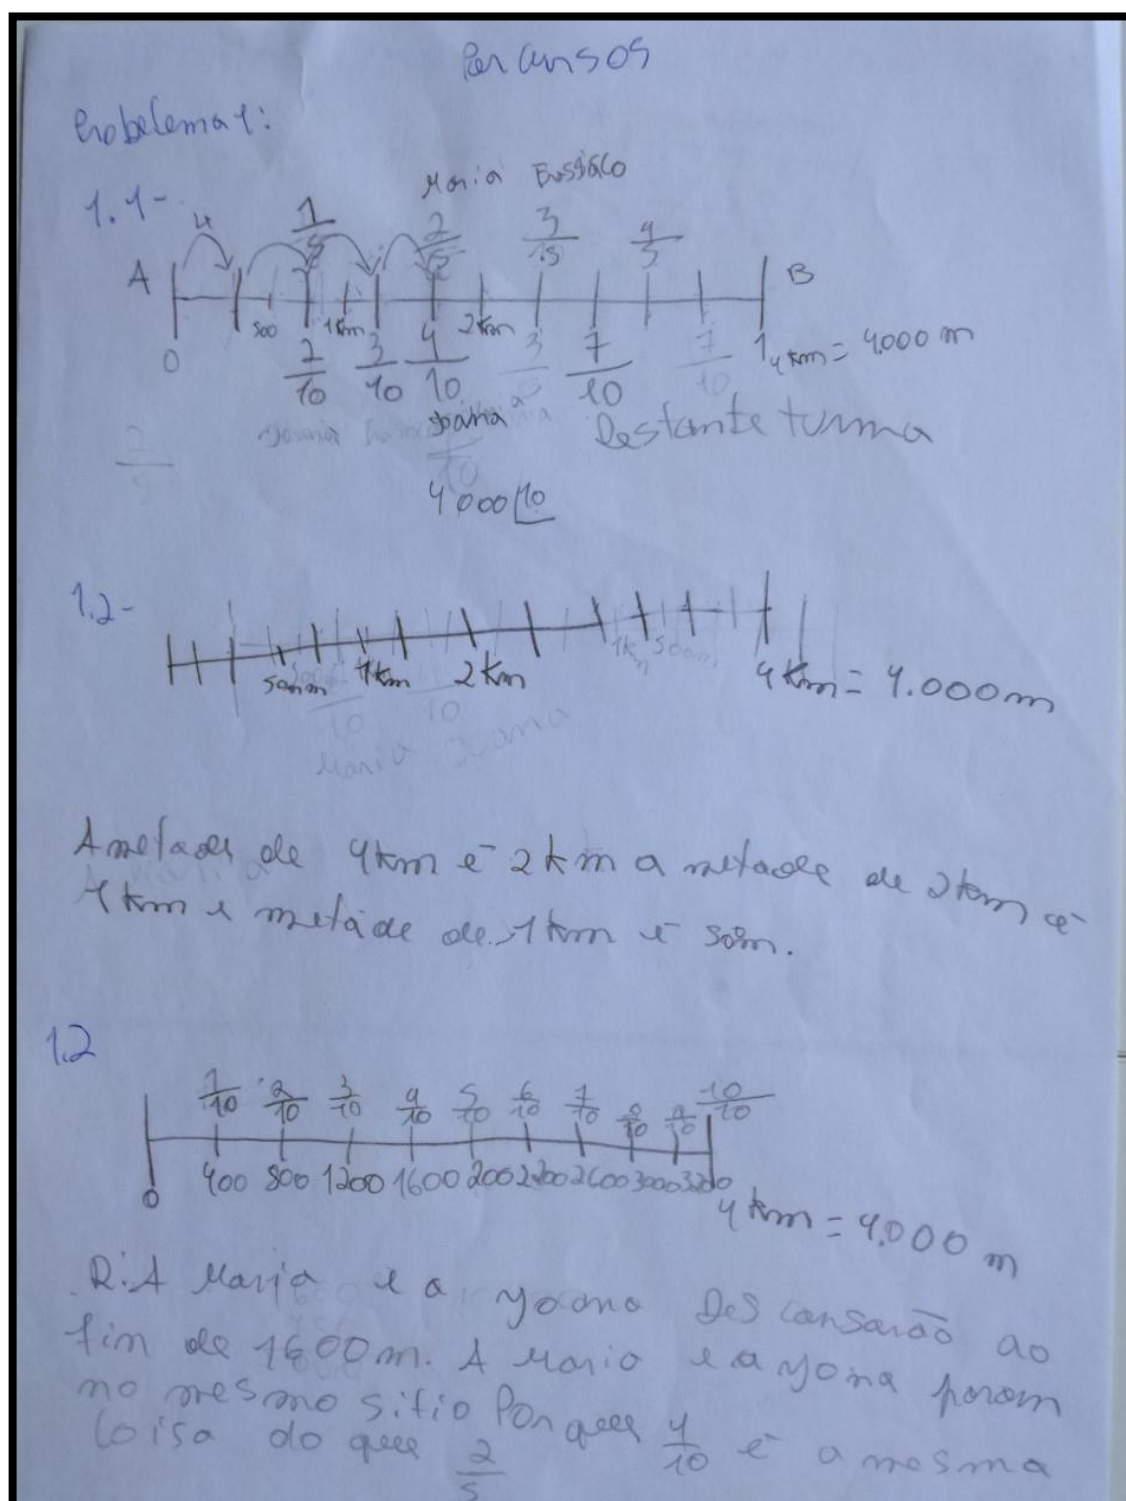 Percursos
Probelema 1:
1.1-
Maria Eustáco
1/5 2/5 3/15 4/5
A B
500 1km 2km
0 2/10 3/10 4/10 3/5 7/10 7/10 1 4km = 4.000 m
Joana Restante turma
2/5
4000 10
1.2-
500m 1km 2km 1km 500m 4km = 4.000m
10 10
Maria Joana
A metade de 4km é 2km a metade de 2km é
1km e metade de 1km é 500m.
1.2
1/10 2/10 3/10 4/10 5/10 6/10 7/10 8/10 9/10 10/10
0 400 800 1200 1600 2000 2200 2600 3000 3200
4 km = 4.000 m
R: A Maria e a yoana Descansarão ao
fim de 1600m. A Maria e a yona param
no mesmo sitio Porque 4/10 é a mesma
coisa do que 2/5